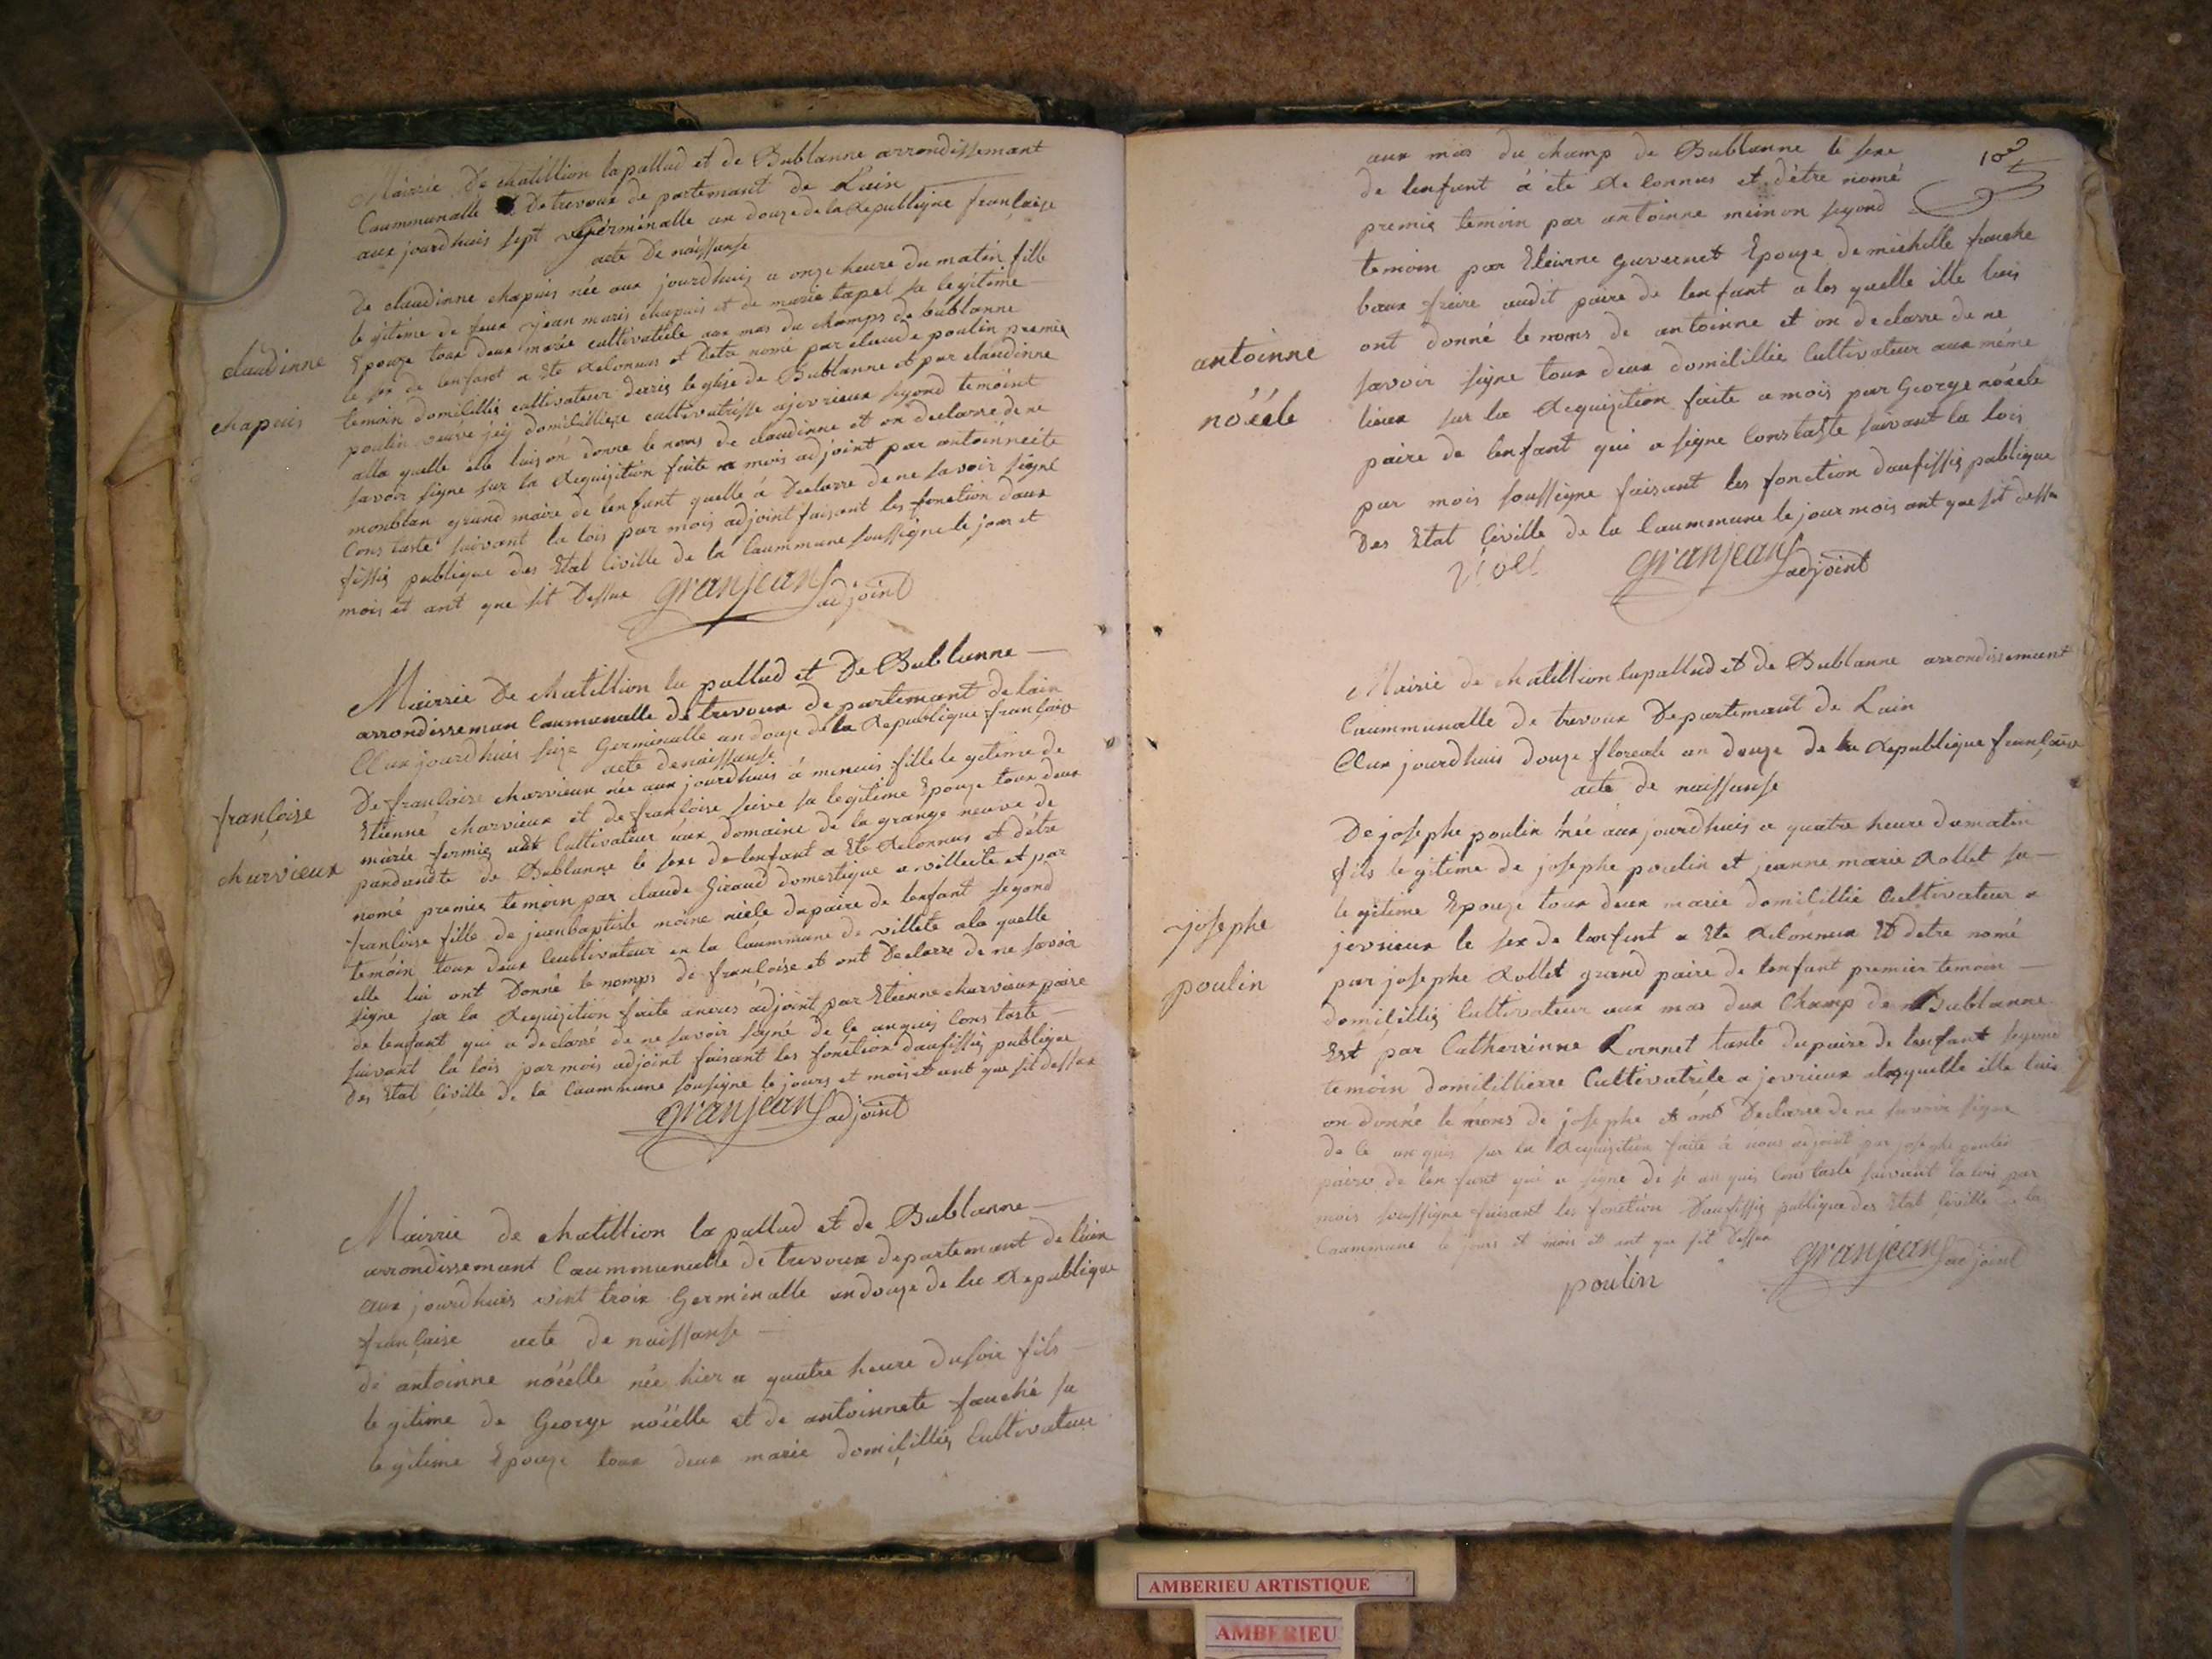 Mairrie De chatillion la pallud et de Bublanne arrondissemant
Caummunalle De trevoux de partemant de Lain
aux jourdhuis sept Gérminalle an douze de la Republique francaise
acte De naissanse
De claudinne chapuis née aux jourdhuis a onze heure du matin fille
le gitime de feux jean maris chapuis et de marie tapet sa le gitime
claudinne
Epouze toux deux marie cultivatielle aux mas du champs de bublanne
le sex de lenfant a Ete Reconnus et Detre nomé par claude poulin premie
chapuis
temoin domicillie cultivateur derrie leglise de Bublanne et par claudinne
poutin veuve domicilliere cultivatrisse a jevrieux segond temoint
alla quelle elle luis on donne le noms de claudinne et on declarre de ne
savoir signe sur la Requisition faite a mois adjoint par antoinneite
monblan grand maire de lenfant quelle á Declarre de ne savoir signé
Constaste suivant la lois par mois adjoint faisant les fonction daux
fissie publique des Etat Civille de la Caummune soussigne le jour et
mois et ant que sit Dessux granjean adjoint
Mairrie De chatillion la pallud et De Bublanne
arrondisseman Caumunalle de trevoux de partemant de lain
Aux jourdhuis seize Germinalle an douze de la Republique francaise
acte de naissanse
De françoise charvieux née aux jourdhuis á minuis fille le gitime de
françoise
Etienne charvieux et de françoise seive sa legitime Epouze toux deux
marié fermie Cultivateur aux domaine de la grange neuve de
charvieux
pandandte de Bublanne le sexe de lenfant a Ete Reconnus et dêtre
nomé premie temoin par claude Giraud domestique a villette et par
françoise fille de jeanbaptiste moine niele du paire de lenfant segond
temóin toux deux Ceultivateur en la Caummune de villete a la quelle
elle lui ont Donné le nomps de françoise et ont Declarre de ne savoir
signe sur la Requisition faite anous adjoint par Etienne charvieux paire
de lenfant qui a declaré de ne savoir signé de Ce anquis Constaste
suivant la lois par mois adjoint faisant les fonction daufissie publique
Des Etat Civille de la Caummune sousigne le jours et mois et ant que sit dessux
granjean adjoint
Mairrie de chatillion la pallud et de Bublanne
arrondissemant Caummunalle de trevoux departemant de lain
aux jourdhuis vint trois Germinalle an douze de la Republique
française acte de naissanse
de antoinne nóéélle née hier a quatre heure du soir fils
le gitime de George nóéélle et de antoinnete fauché sa
legitime Epouze toux deux marie domicillie Cultivateur
102
aux mas du champ de Bublanne le sexe
de lenfant á été Reconnus et dêtre nomé
premie temoin par antoinne meinon segond
temoin par Eteinne guvernet Epouze de michelle fauche
baux fraire audit paire de lenfant a les quelle ille luis
antoinne
ont donné le noms de antoinne et on declarre de ne
savoir signe toux deux domicillie Cultivateur aux même
nóééle
lieux sur la Requisition faite a mois par George nóéele
paire de lenfant qui a signe Constaste suivant la lois
par mois soussigne faisant les fonction daufissie publique
Des Etat Civille de la Caummune le jour mois ant que sit dessu
granjean adjoint
Mairie de chatillion lapallud et de Bublanne arrondissemant
Caummunalle de trevoux Departemant de Lain
Aux jourdhuis douze floreale an douze de la Republique française
acte de naissanse
De josephe poulin née aux jourdhuis a quatre heure dumatin
fils legitime de josephe poulin et jeanne marie Rollet sa
josephe
le gitime Epouze toux deux marie domicillie Cultivateur a
jevrieux le sex de lanfant a Ete Reconnux Et detre nomé
poulin
par josephe Rollet grand paire de lenfant premier temoin
domicillie Cultivateur aux mas dux Champ de Bublanne
Est par Catherrinne Lounnet tante du paire de lenfant segond
temoin domicillierre Cultivatrile a jevrieux alaquelle ille luis
on donné le nóms de josephe et ónt Declarée de ne savoir signe
de Ce an quis sur la Requisition faite á nous adjoint par josephe poulin
paire de lenfant qui a signe de se an quis Constaste suivant la lois par
mois soussigne faisant les fonction Daufissie publique des Etat Civille de la
Caummune le jours et mois et ant que sit Dessux granjean adjoint
poulin
AMBERIEU ARTISTIQUE
AMBERIEU